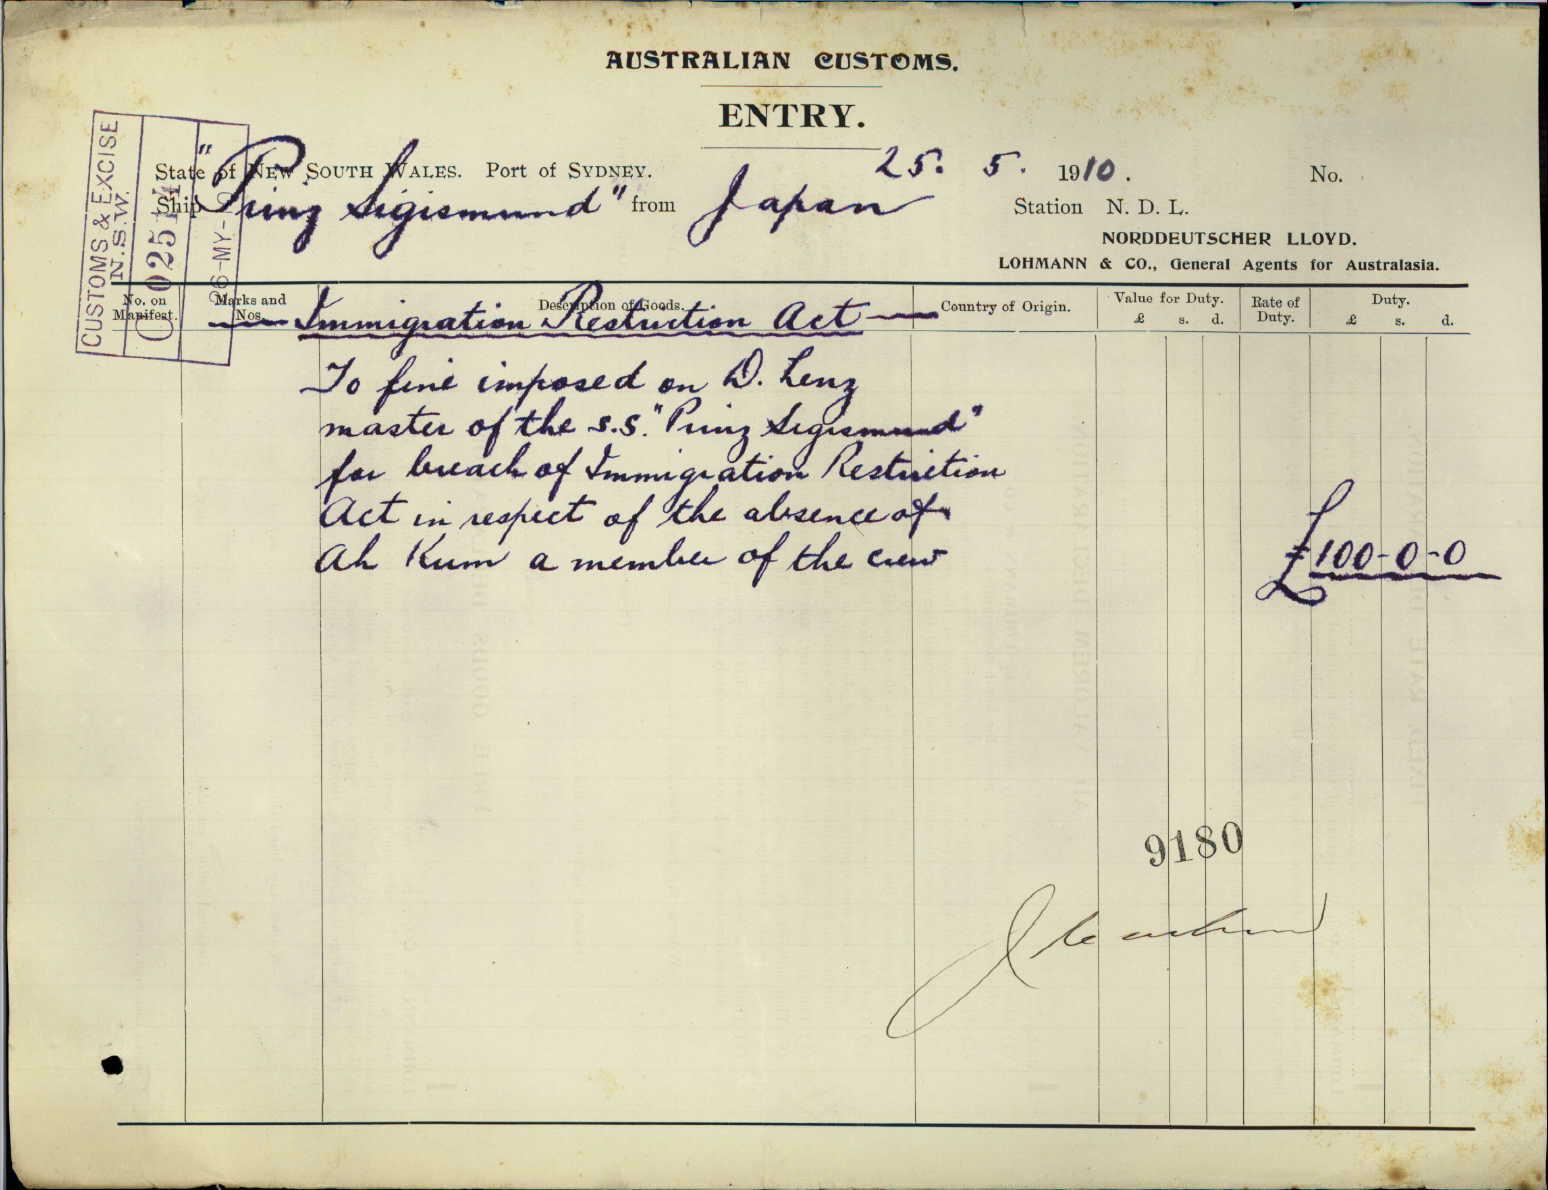 AUSTRALIAN CUSTOMS.
ENTRY.
CUSTOMS & EXCISE
N.S.W.
State of NEW SOUTH WALES. Port of SYDNEY.
25. 5. 1910.
No.
Ship "Prinz Sigismund" from Japan
Station N. D. L.
NORDDEUTSCHER LLOYD.
LOHMANN & CO., General Agents for Australasia.
No. on Manifest.
Marks and Nos.
Description of Goods.
Country of Origin.
Value for Duty.
£ s. d.
Rate of Duty.
Duty.
£ s. d.
Immigration Restriction Act
To fine imposed on D. Lenz
master of the s.s. "Prinz Sigismund"
for breach of Immigration Restriction
Act in respect of the absence of
Ah Kum a member of the crew
£100-0-0
9180